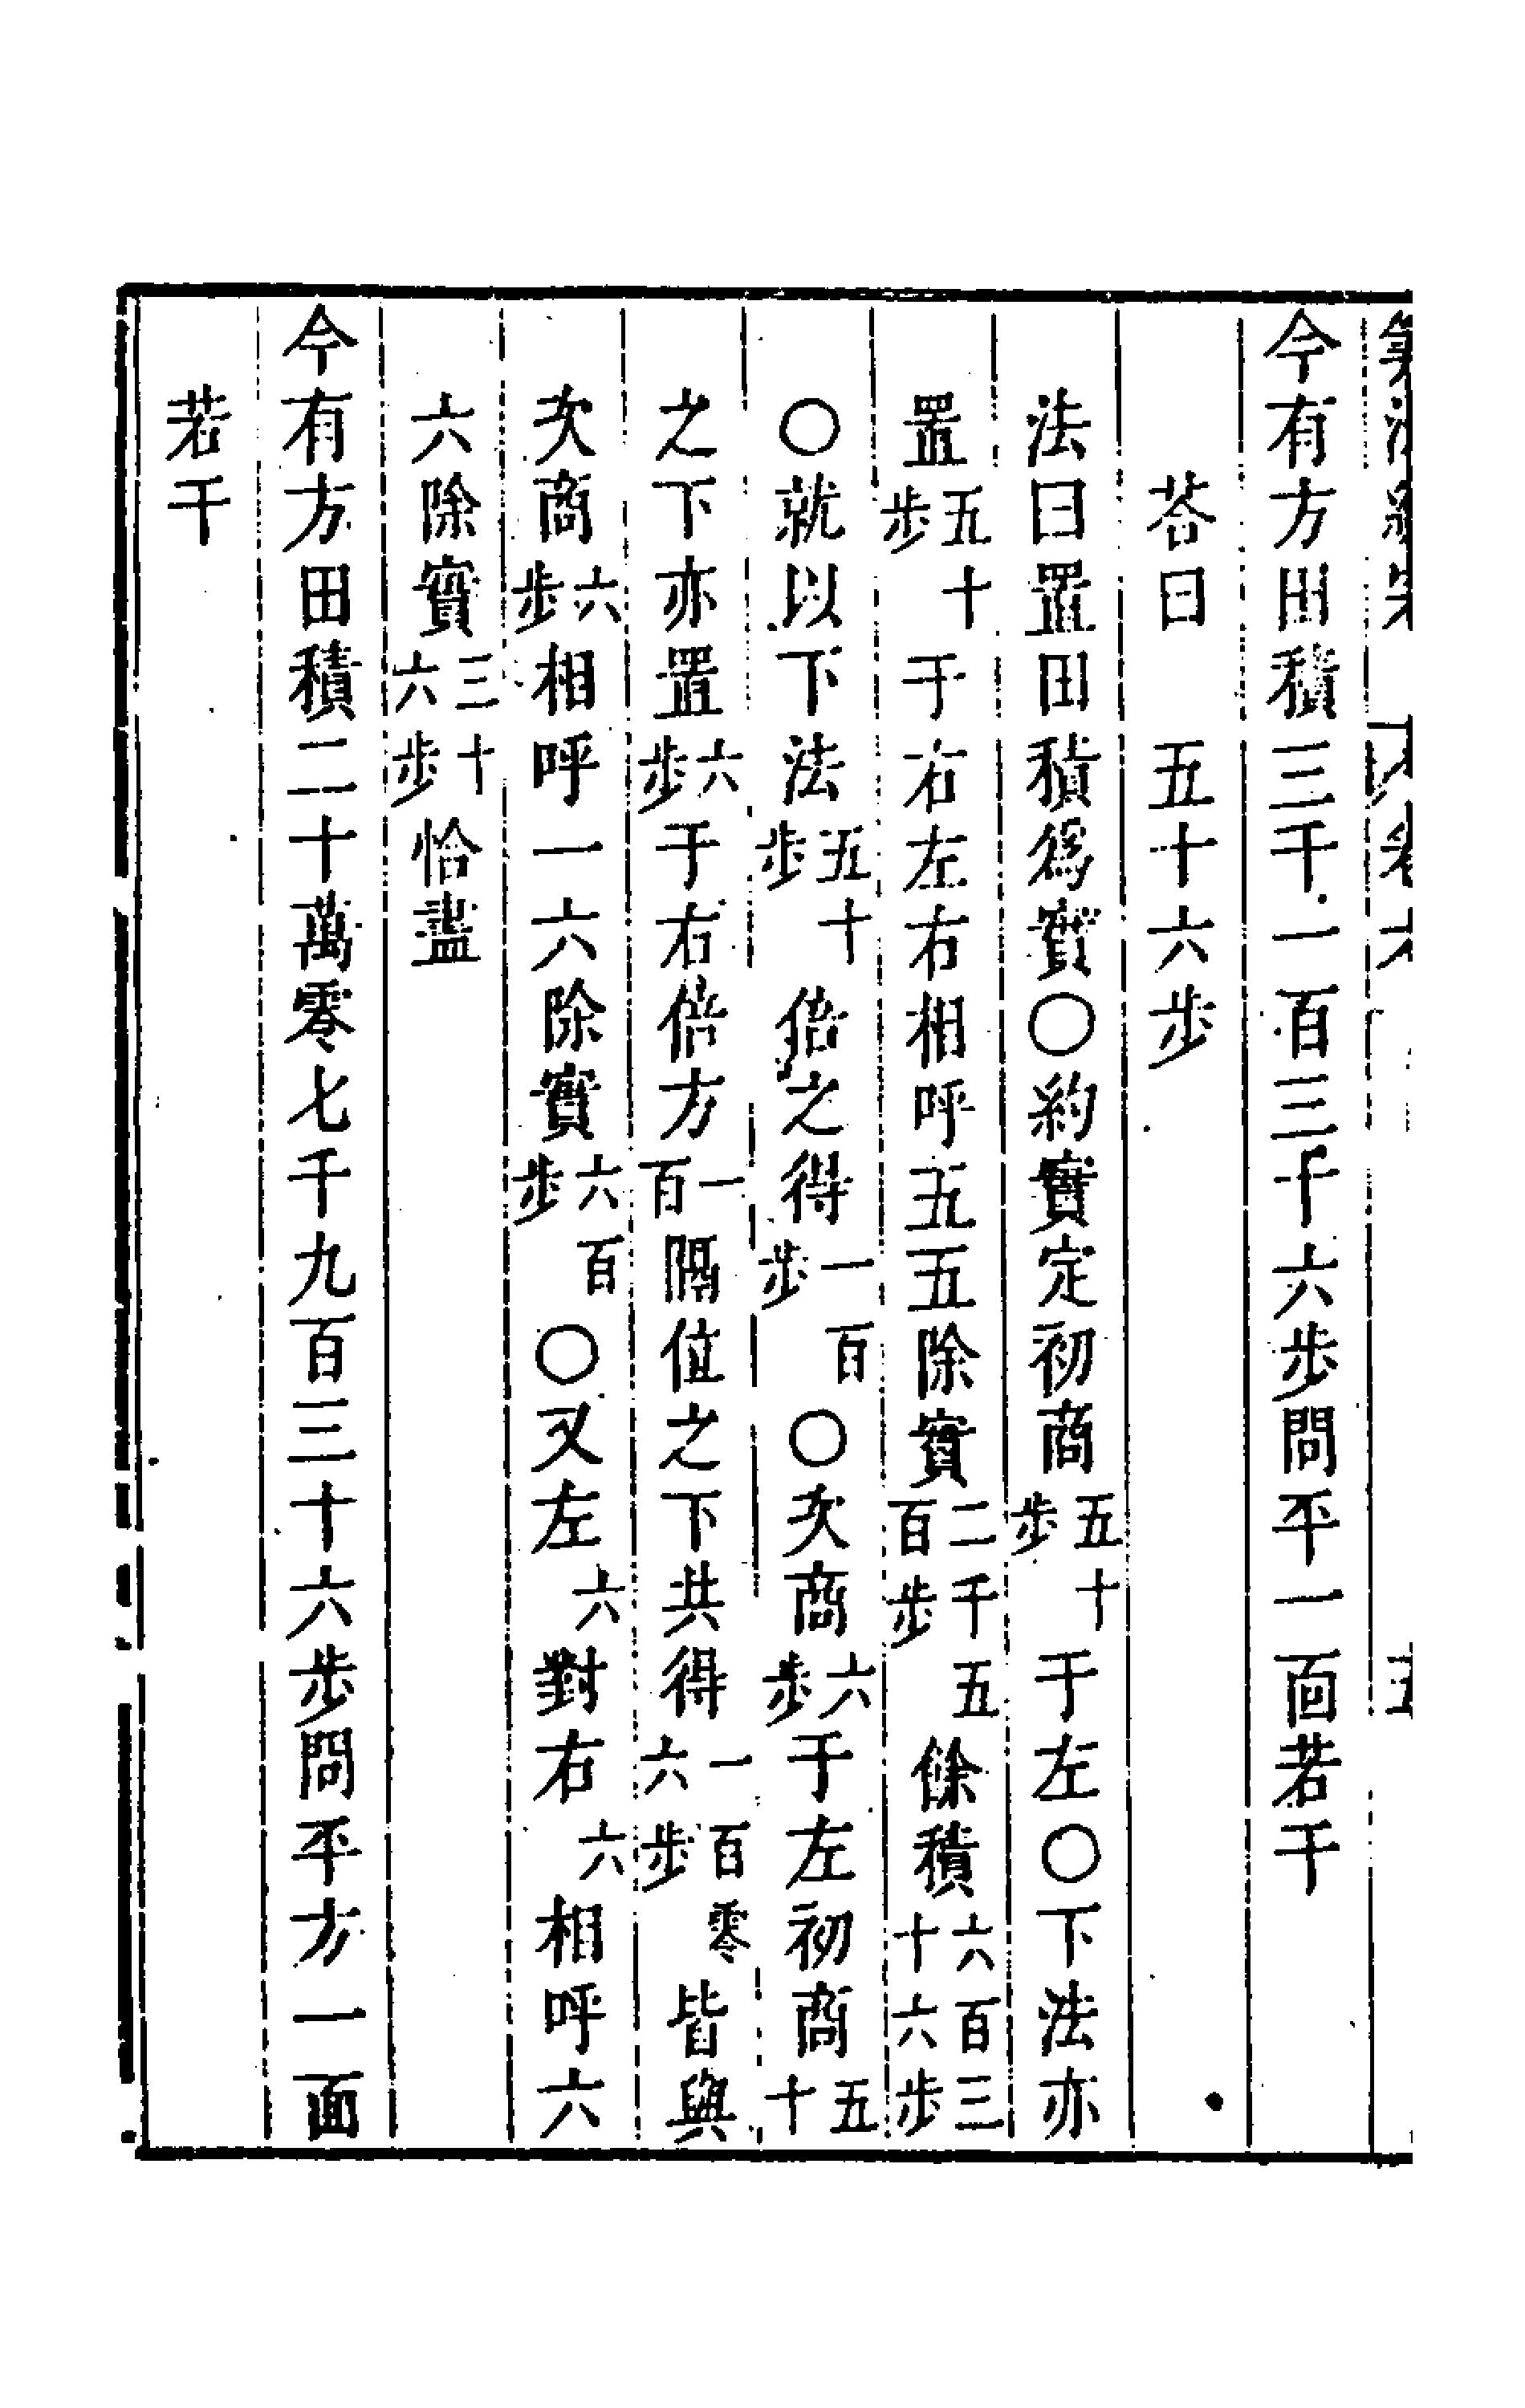 今有方田積三千一百三十六步問平一面若干
荅曰 五十六步
法曰置田積爲實〇約實定初商五十步于左〇下法亦
置五十步于右左右相呼五五除實二千五百步餘積六百三十六步
〇就以下法五十步倍之得一百步〇次商六步于左初商五十
之下亦置六步于右倍方一百隔位之下共得一百零六步皆與
次商六步相呼一六除實六百步〇又左六對右六相呼六
六除實三十六步恰盡
今有方田積二十萬零七千九百三十六步問平方一面
若干